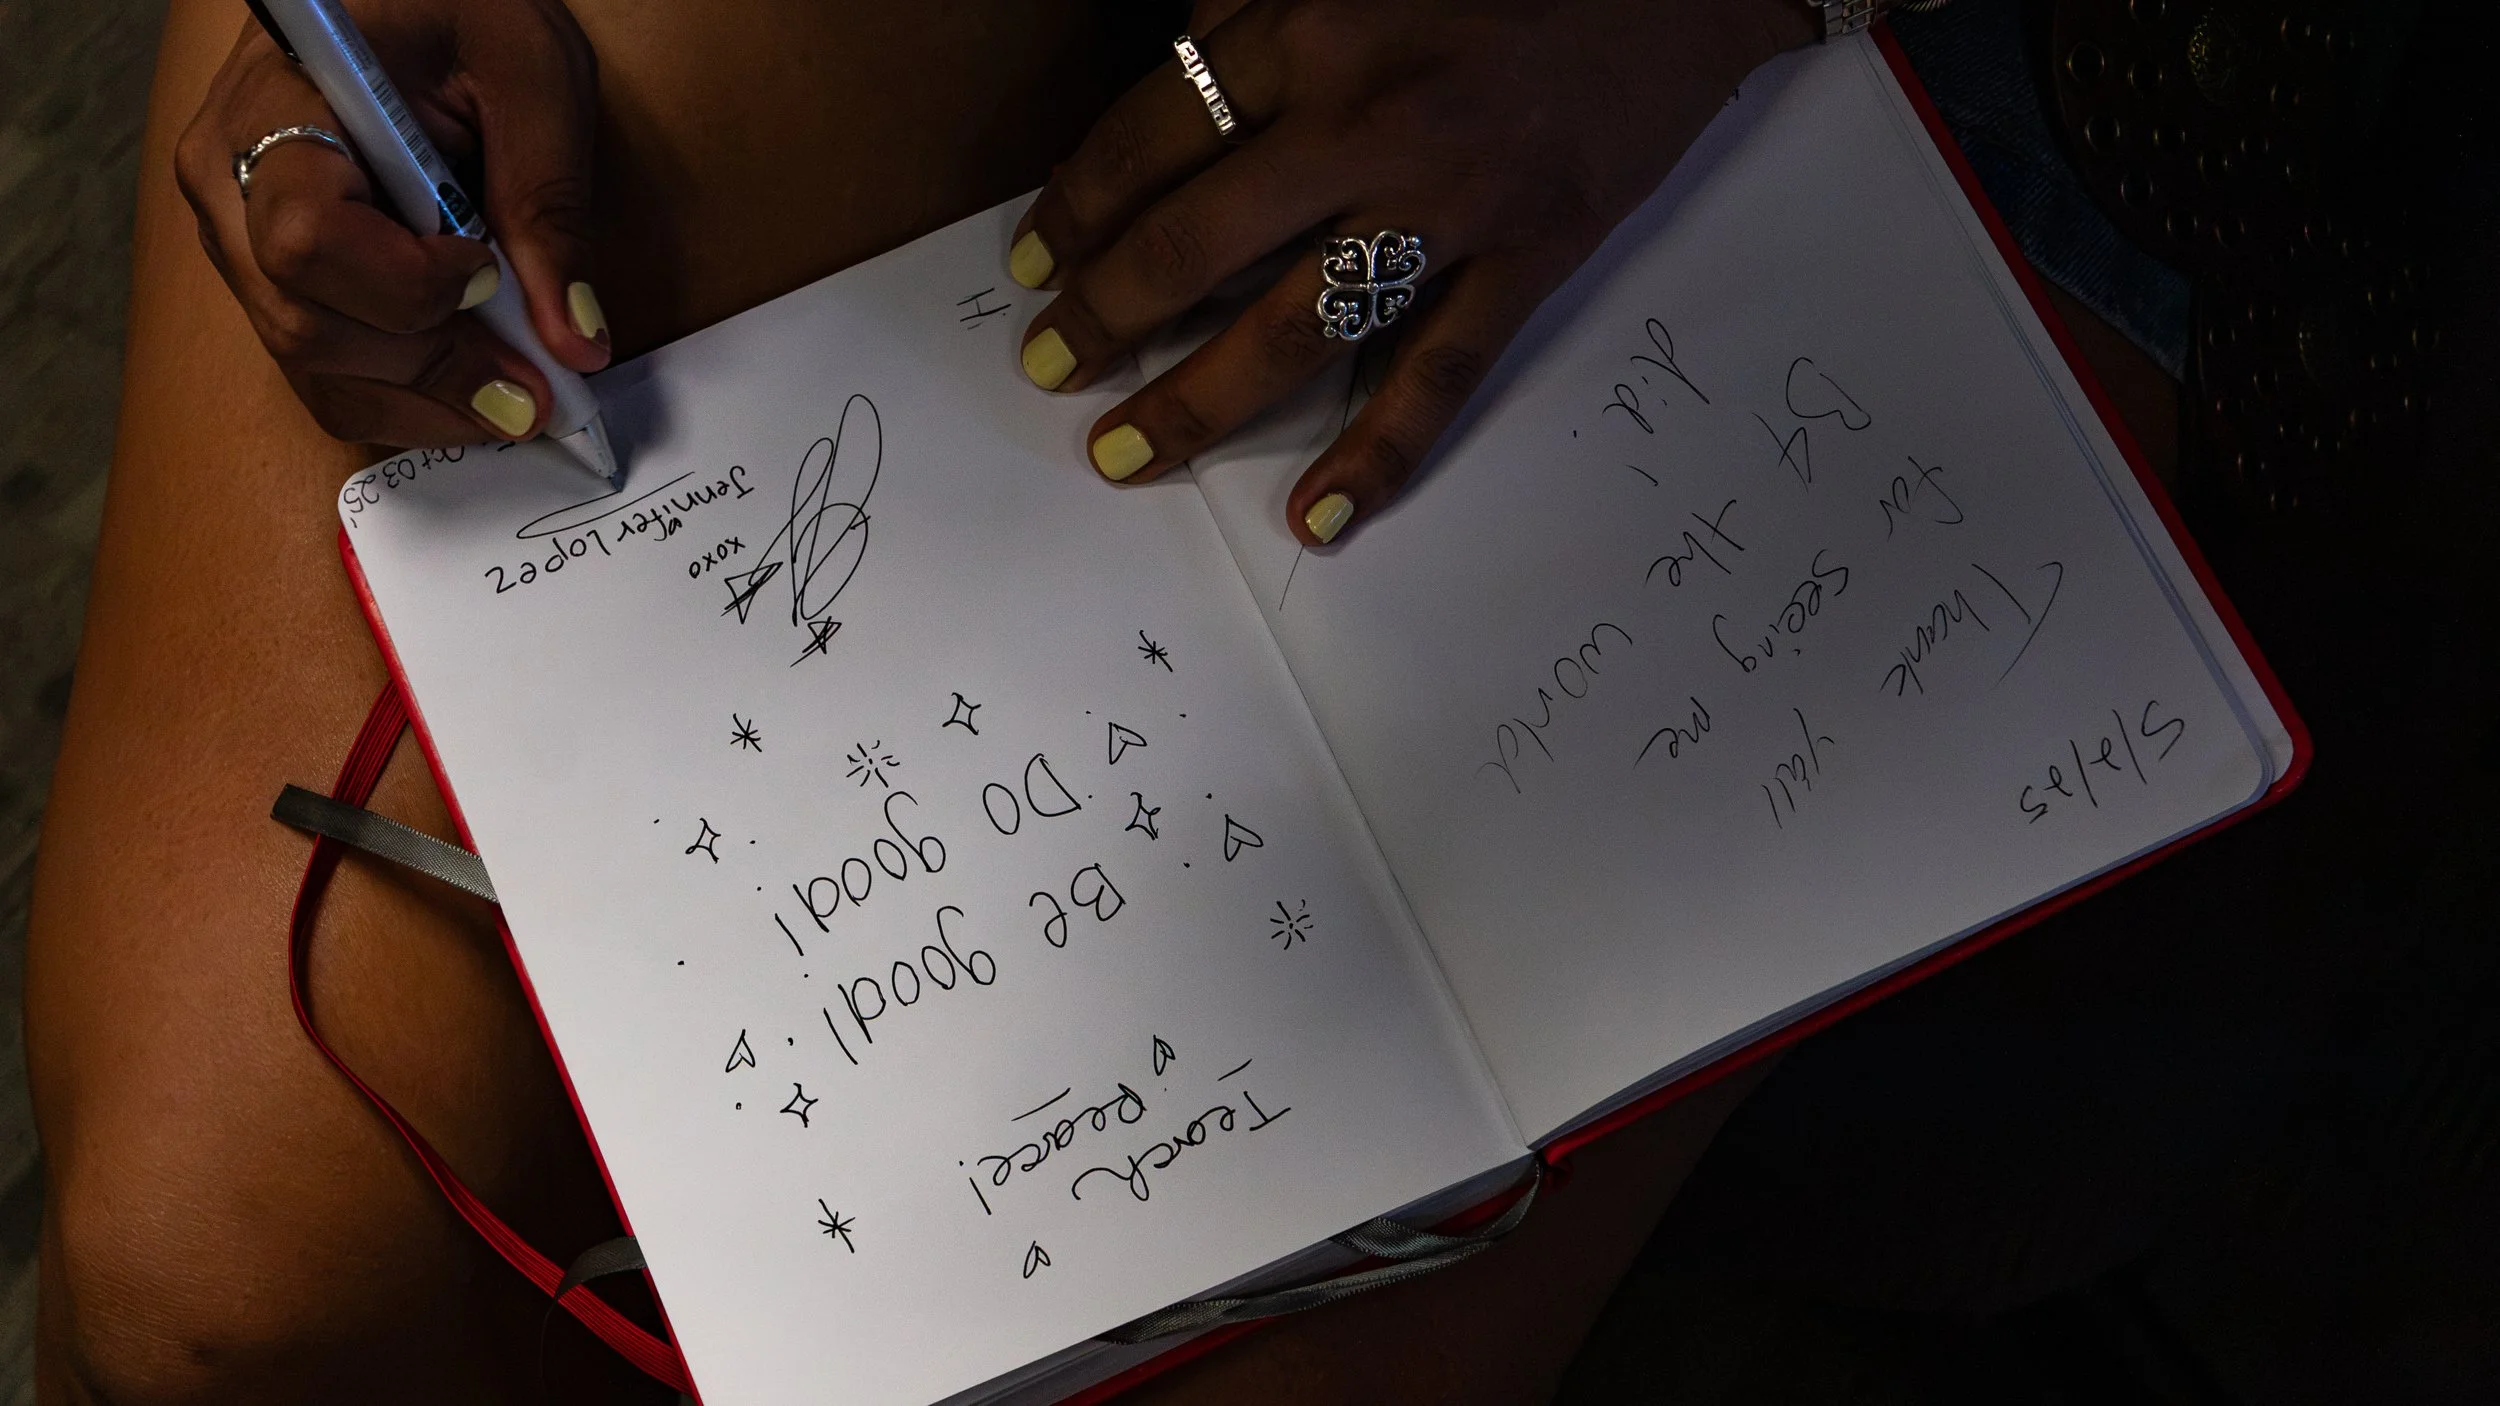 5/2/25
Thank y'all
for seeing me
B4 the world
did.
Teach
peace!
Be good!
Do good!
xoxo
Jennifer Lopez
Oct 03 25'